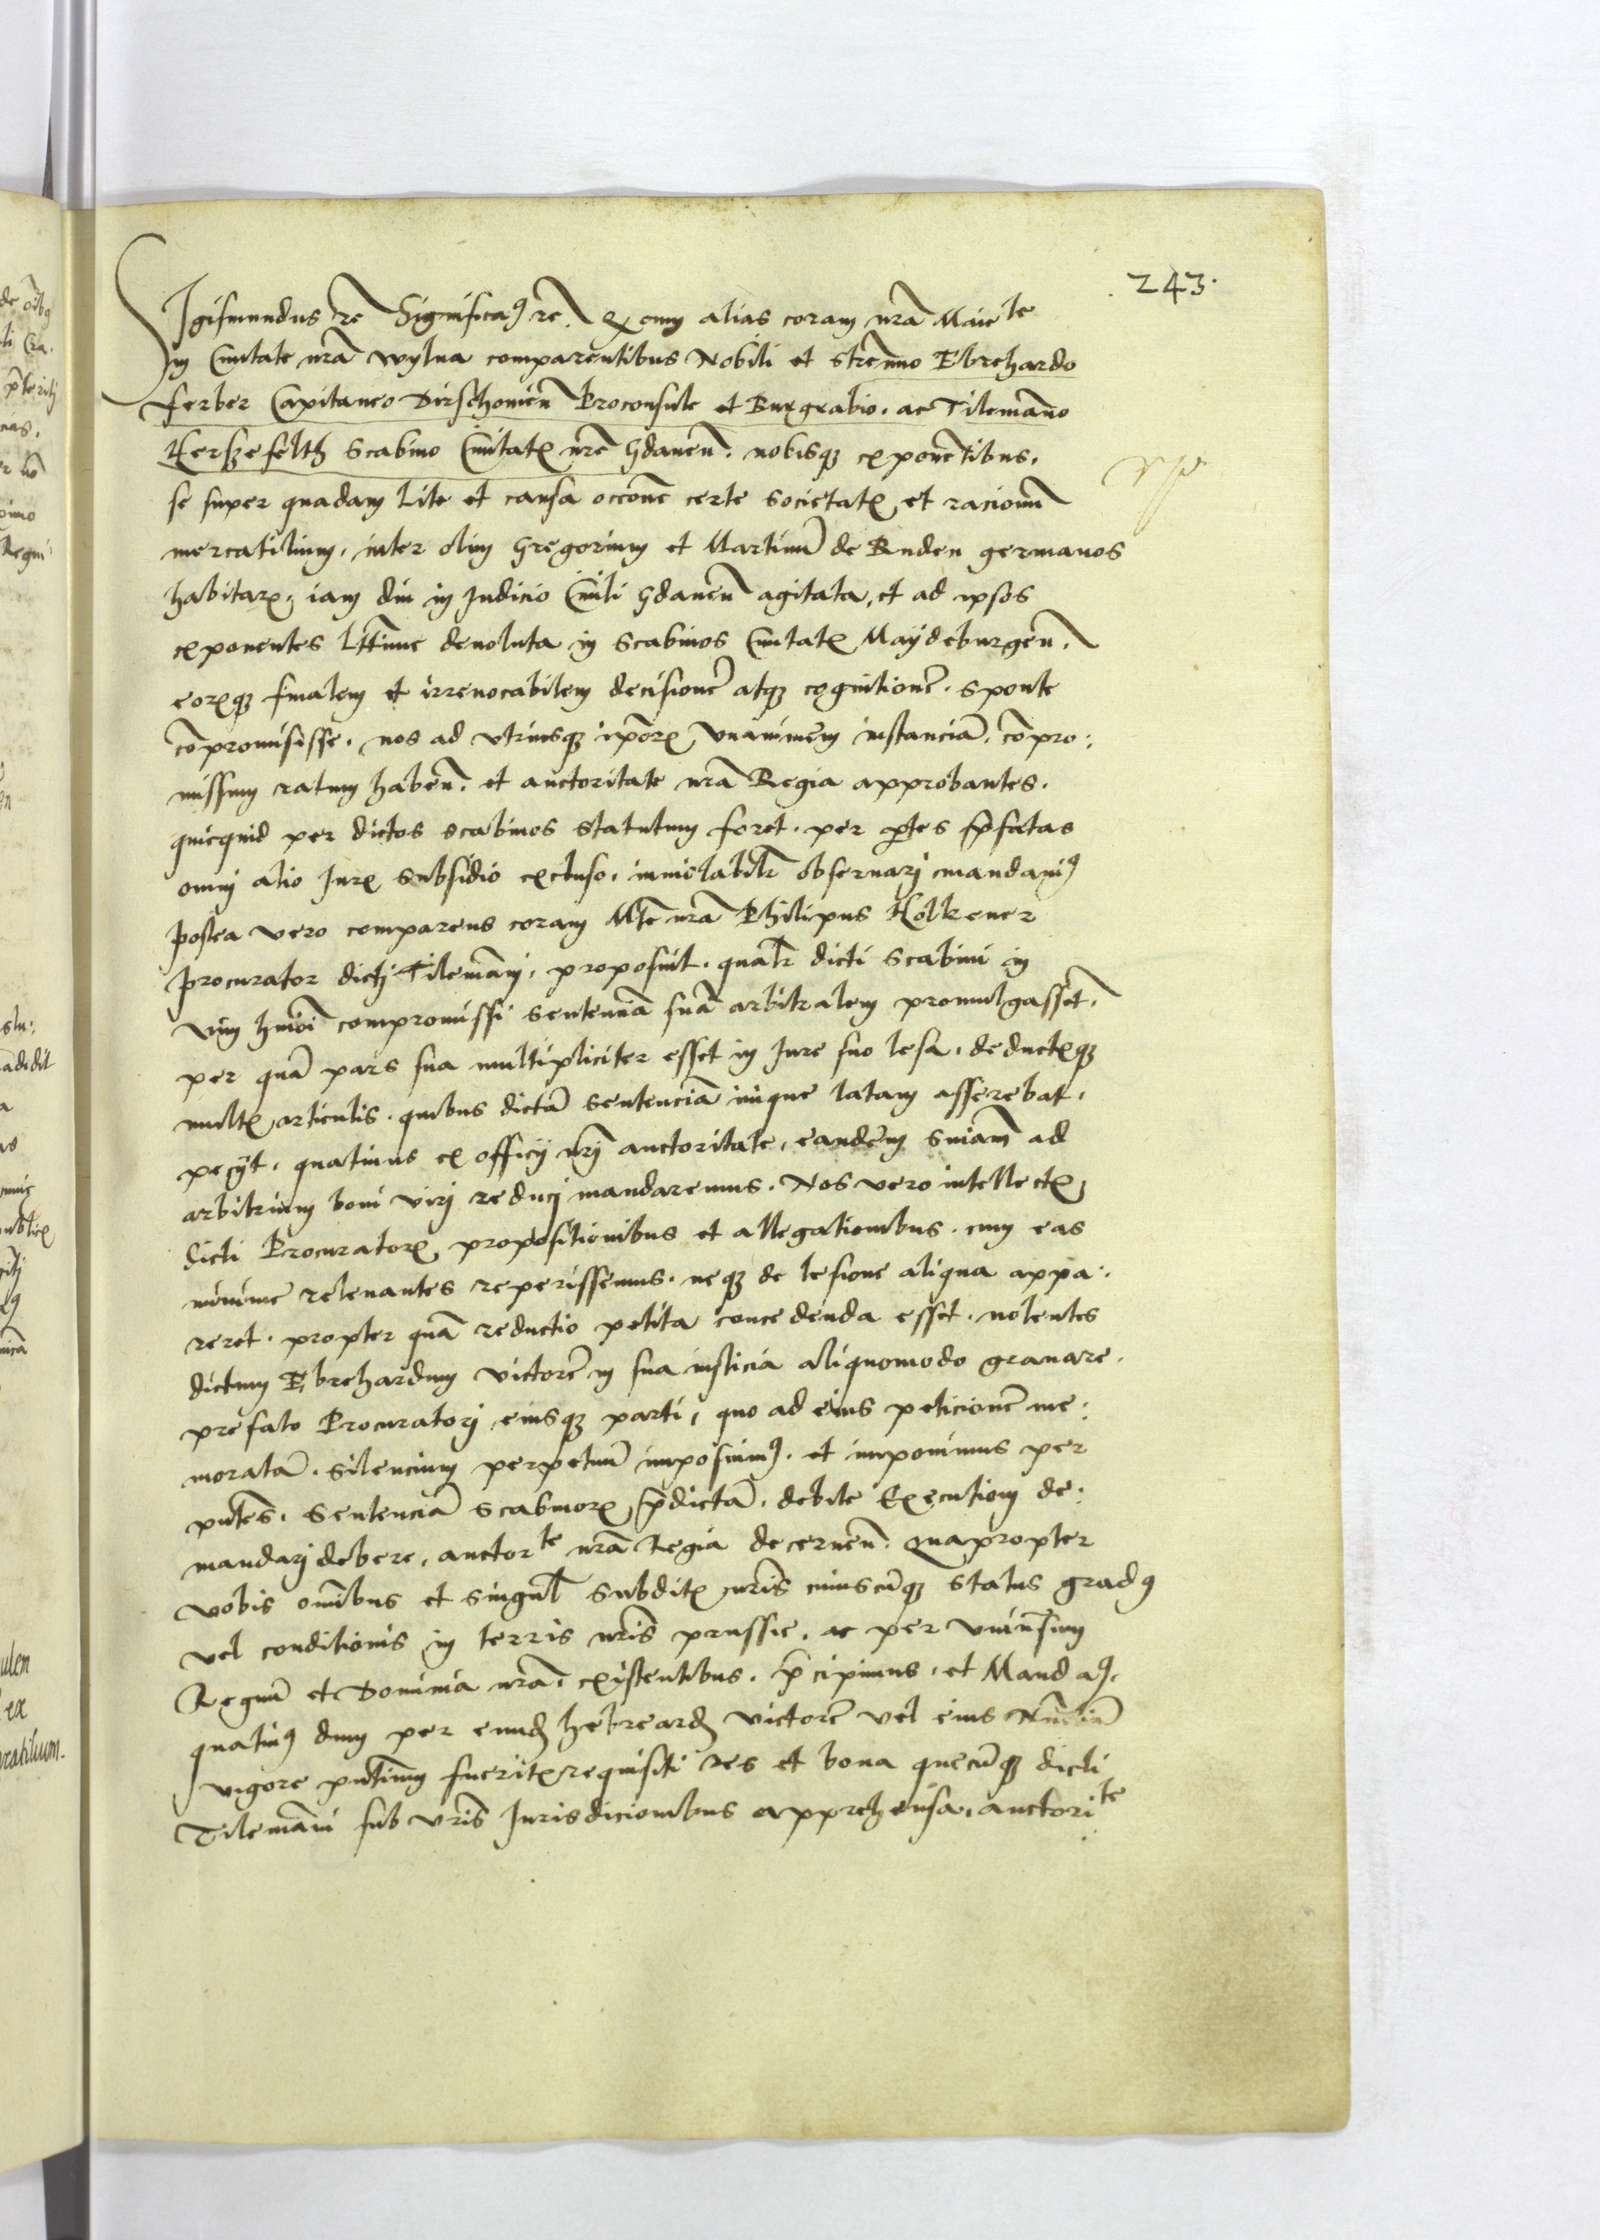 243.
Sigismundus rc̄ Significaꝰ rc̄. Q cum alias coram nr̄a Maiẽte
in Ciuitate nr̄a wylna comparentibus Nobili et strennuo Ebrehardo
ferber Capitaneo Dirschouien̄ Proconsule et Burgrabio. ac Tilemãno
Herszefelth Scabino Ciuitatꝭ nr̄e Gdanen̄. nobisqꝫ exponẽtibus.
se super quadam lite et causa occõne certe Societatꝭ et racionũ
mercatilium. inter olim Gregorium et Martinũ de Ruden germanos
habitarꝭ iam diu in Judicio Ciuili Gdanen̄ agitata, et ad ipsos
exponentes lttime deuoluta in Scabinos Ciuitatꝭ Maydeburgen̄.
eorꝭqꝫ finalem et irreuocabilem decisionẽ atqꝫ cognitionẽ. sponte
cõpromisisse. nos ad vtriusqꝫ ip̄orꝭ vnanimem instanciã. cõpro:
missum ratum haben̄. et auctoritate nr̄a Regia approbantes.
quicquid per dictos scabinos statutum foret. per p̱tes p̄fatas
omni alio Jurꝭ Subsidio excluso. inuiolabilr̄ obseruarj mandauimꝰ
Postea vero comparens coram Mte nr̄a Philipus Holkener
procurator dictj Tilemãnj, proposuit. qualr̄ dicti Scabini in
vim hmõi compromissi Sentenciã suã arbitralem promulgassẽt.
per quã pars sua multipliciter esset in Jure suo lesa. deductꝭqꝫ
multꝭ articulis. quibus dictã Sentenciã inique latam asserebat.
pecijt. quatinus ex officij nr̄j auctoritate, eandem Sniam̄ ad
arbitrium boni virj reducj mandaremus. Nos vero intellectꝭ
dicti Procuratorꝭ propositionibus et allegationibus. cum eas
minime releuantes reperissemus. neqꝫ de lesione aliqua appa:
reret. propter quã reductio petita concedenda esset. nolentes
dictum Ebrehardum victorẽ in sua iusticia aliquomodo grauare.
prefato Procuratorj eiusqꝫ parti, quo ad eius peticionẽ me:
moratã. Silencium perpetuũ imposuimꝰ. et imponimus per
pn̄tes. Sentenciã Scabinorꝭ p̄dictã. debite Executioni de:
mandarj debere, auctorte nr̄a Regia decernen̄. Quapropter
vobis om̄ibus et Singul̄ Subditꝭ nr̄is cuiuscũqꝫ Status gradꝰ
vel conditionis in terris nr̄is prussie. ac per vniuersum
Regnũ et Dominia nr̄a. existentibus. p̄cipimus. et Mandaꝰ.
quatinꝰ dum per eund hebreard victorẽ vel eius Nũciũ
vigore pn̄tium fueritꝭ requisiti Res et bona quecũqꝫ dicti
Tilemãni sub vr̄is Jurisdicionibus apprehensa, auctorite